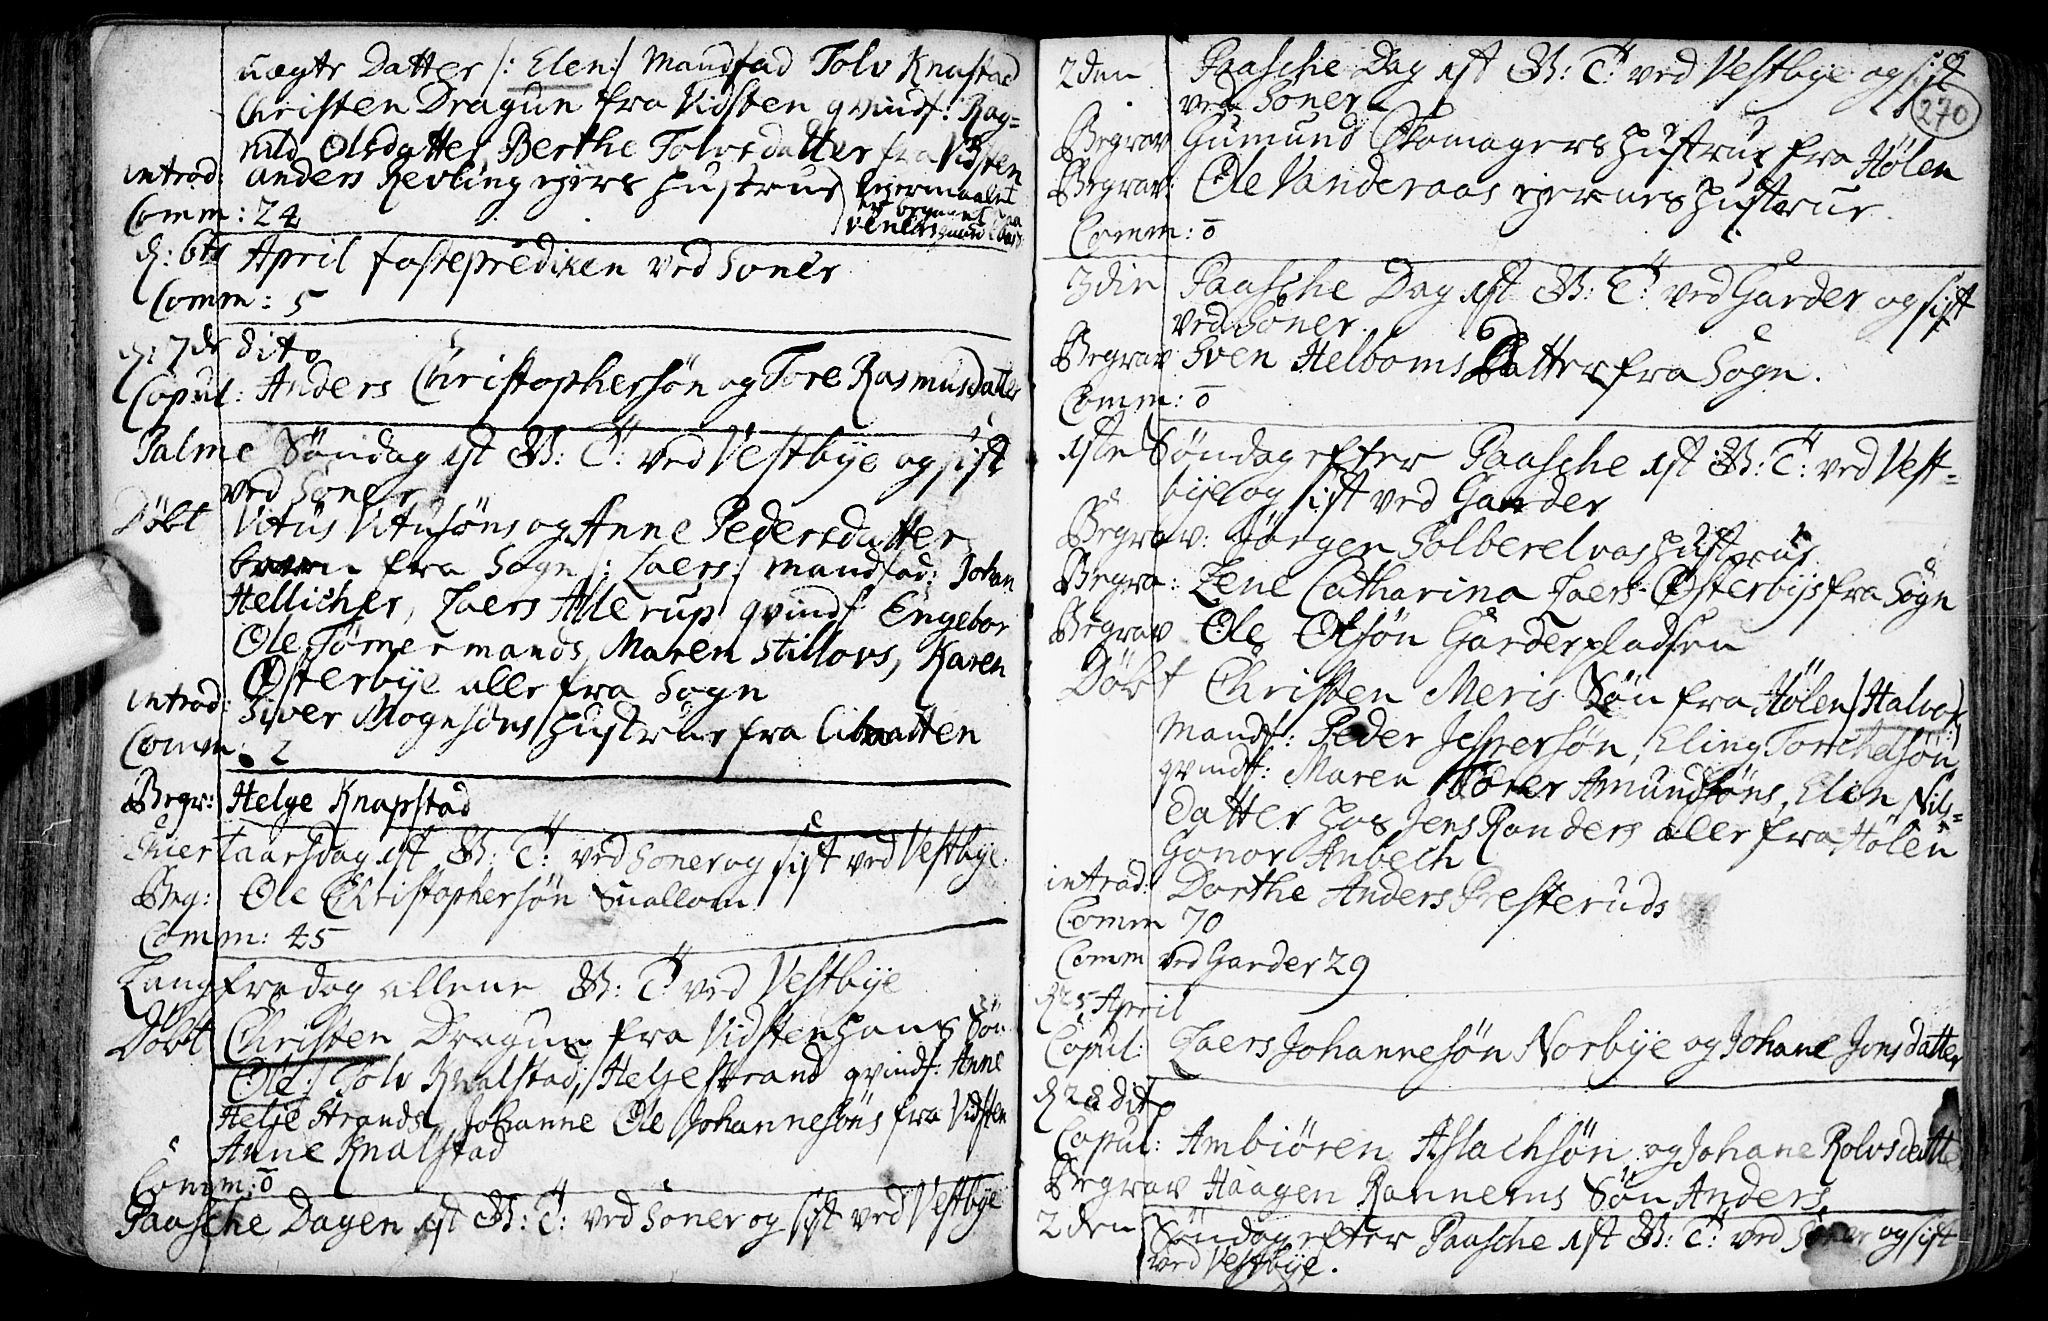 uægte Datter /: Elen :/ Mandfad Tolv Knastad
Christen Dragun fra Vidsten qvindf: Rag=
nild Olsdatter, Berthe Tolvsdatter fra Vidsten
introd: Anders Revling ejers Hustrue
Comm: 24
d: 6te April fasteprediken ved Soner
Comm: 5
d: 7de dito
Copul: Anders Christophersøn og Tore Rasmusdatter
Palme Søndag 1st B: T: ved Vestbye og sist
ved Soner
Døbt Vitus Vitusøns og Anne Pedersdatter
barn fra Sogn /: Laers :/ mandfad: Johan
Hellicher, Laers Allerup qvindf: Engebor
Ole Tømermands, Maren Stillovs, Karen
Østerbye alle fra Sogn
introd: Siver Mognsøns Hustrue fra
Comm: 2
Begr: Helge Knapstad
Skiertaarsdag 1st B: T: ved Soner og sist ved Vestbye.
Beg: Ole Christophersøn Suallom
Comm: 45
Langfredag allene B: T: ved Vestbye
Døbt Christen Dragun fra Vidsten hans Søn
Ole :/ Tolv Knalstad, Helje Strand qvindf: Anne
Helje Strands, Johanne Ole Johannesøns fra Vidsten
Anne Knalstad
Comm: o
Paasche Dagen 1st B: T: ved Soner og sist ved Vestbye
270
2den Paasche Dag 1st B: T: ved Vestbye og sist
ved Soner
Begrav Gumund Skomagers Hustrue fra Hølen
Begrav: Ole Vanderaas Hustrue
Comm: o
3die Paasche Dag 1st B: T: ved Garder og sist
ved Soner
Begrav Sven Helboms Datter fra Sogn.
Comm: o
1ste Søndag efter Paasche 1st B: T: ved Vest=
bye og sist ved Garder
Begrav: Jørgen Solberelvas Hustrue
Begra: Lene Catharina Laers Østerbys fra Sogn
Begrav Ole Olsøn Garderpladsen
Døbt Christen Meris Søn fra Hølen /: Halvor :/
Mandf: Peder Jespersøn, Eling Torchelsøn,
qvindf: Maren Torer Amundsøns, Elen Nils=
datter hos Jens Randers alle fra Hølen
Gonor Anbech
introd: Dorthe Anders Presteruds
Comm 70
Comm ved Garder 29
d: 25 April
Copul: Laers Johannesøn Norbye og Johane Jonsdatter
d: 28 dito
Copul: Ambiøren Aslachsøn og Johane Rolvsdatter
Begrav Haagen Rannems Søn Anders,
2den Søndag efter Paasche 1st B: T: ved Soner og sist
ved Vestbye.